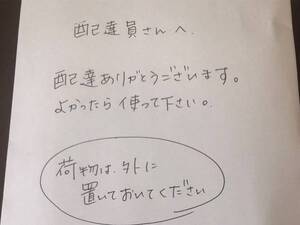 配達員さんへ.
配達ありがとうございます。
よかったら使って下さい。
荷物は、外に
置いておいてください